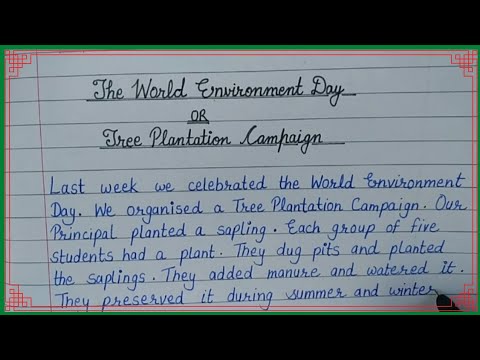 The World Environment Day
OR
Tree Plantation Campaign
Last week we celebrated the World Environment
Day. We organised a Tree Plantation Campaign. Our
Principal planted a sapling. Each group of five
students had a plant. They dug pits and planted
the saplings. They added manure and watered it.
They preserved it during summer and winter